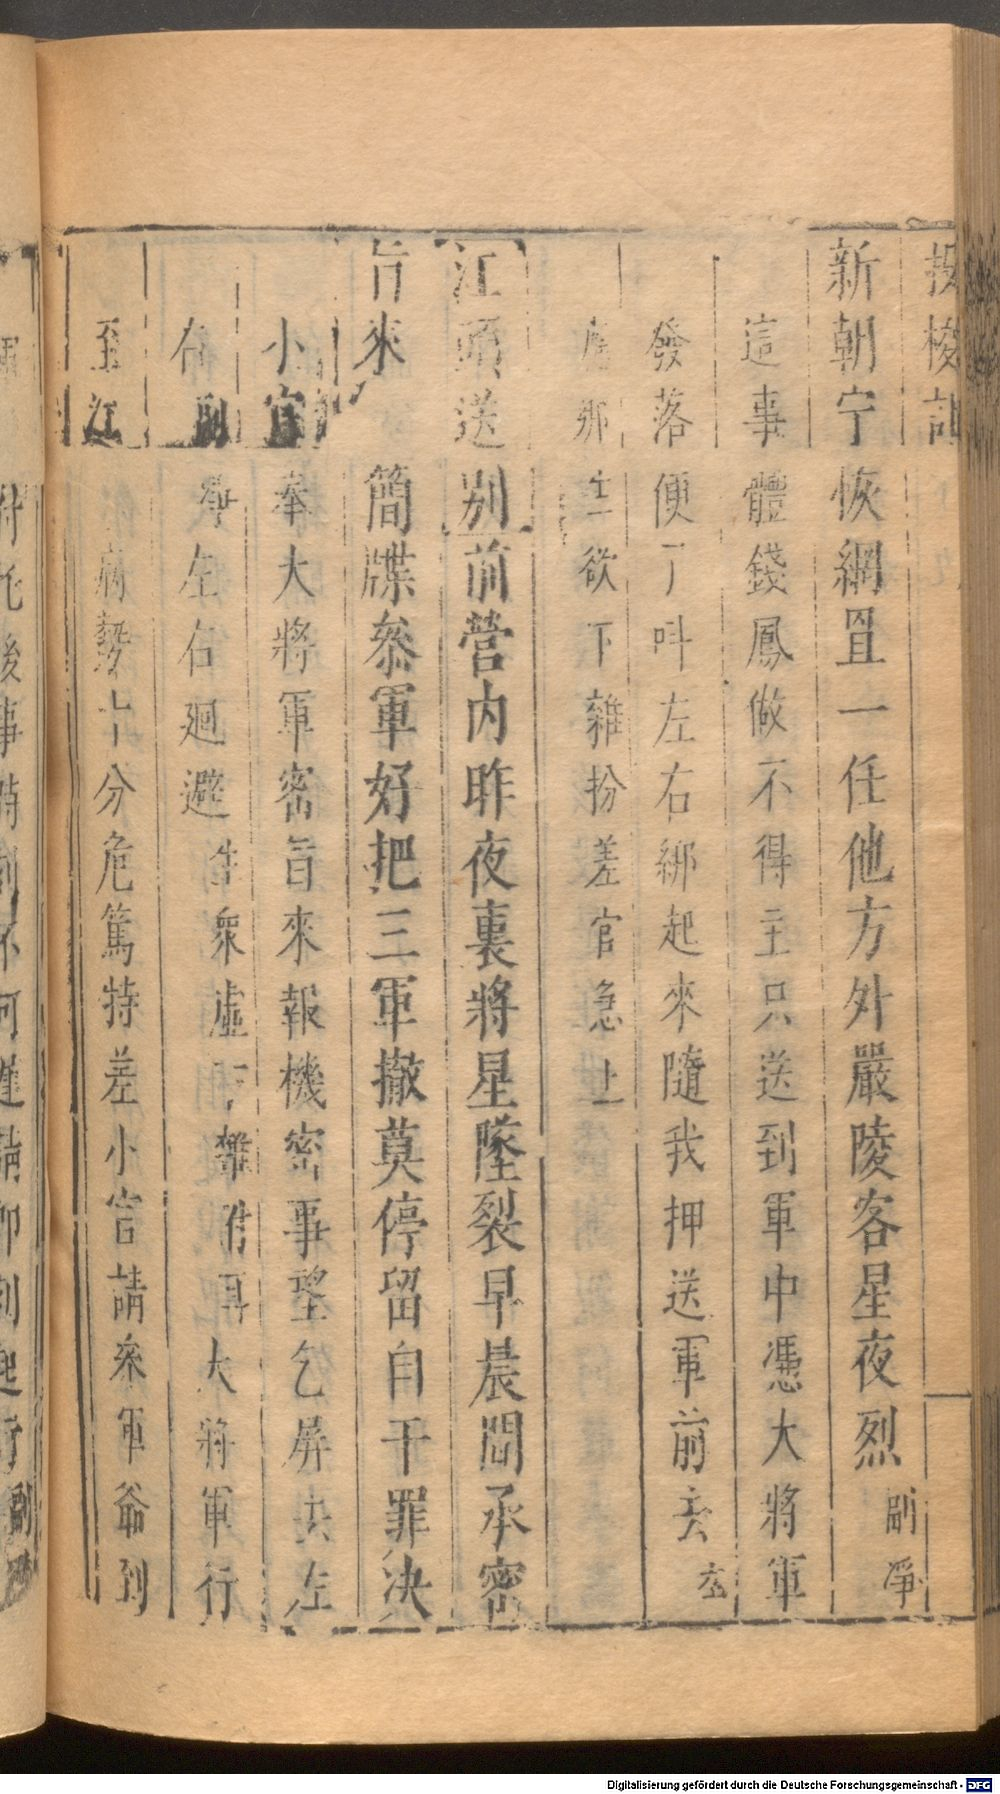 投梭記
新朝宁恢網罝一任他方外嚴陵客星夜烈副淨
這事體錢鳳做不得主只送到軍中憑大將軍
發落便了叫左右綁起來隨我押送軍前去
生欲下雜扮差官急上
江頭送別前營內昨夜裏將星墜裂早晨間承密
旨來簡牒叅軍好把三軍撤莫停留自干罪決
小官奉大將軍密旨來報機密事望乞屏去左
右副淨左右廻避衆虛下雜附耳大將軍行
至江病勢十分危篤特差小官請叅軍爺到
付托後事
Digitalisierung gefördert durch die Deutsche Forschungsgemeinschaft - DFG